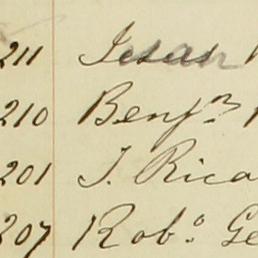 211 Isaah
210 Benjn
201 J. Rica
207 Robo. Ge